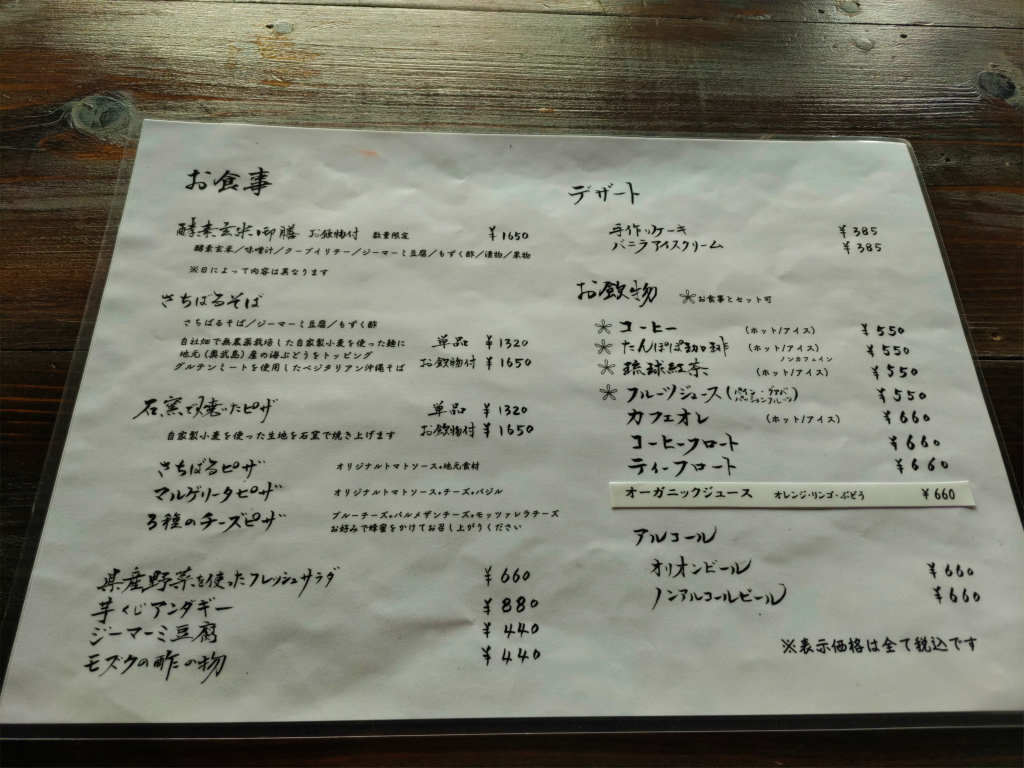 お食事
酵素玄米御膳 お飲物付 数量限定 ¥1650
酵素玄米/味噌汁/クーブイリチー/ジーマーミ豆腐/もずく酢/漬物/果物
※日によって内容は異なります
さちばるそば
さちばるそば/ジーマーミ豆腐/もずく酢
自社畑で無農薬栽培した自家製小麦を使った麺に 単品 ¥1320
地元(奥武島)産の海ぶどうをトッピング
グルテンミートを使用したベジタリアン沖縄そば お飲物付 ¥1650
石窯で焼いたピザ 単品 ¥1320
自家製小麦を使った生地を石窯で焼き上げます お飲物付 ¥1650
さちばるピザ オリジナルトマトソース+地元食材
マルゲリータピザ オリジナルトマトソース+チーズ+バジル
3種のチーズピザ ブルーチーズ+パルメザンチーズ+モッツァレラチーズ
お好みで蜂蜜をかけてお召し上がりください
県産野菜を使ったフレッシュサラダ ¥660
芋くじアンダギー ¥880
ジーマーミ豆腐 ¥440
モズクの酢の物 ¥440
デザート
手作りケーキ ¥385
バニラアイスクリーム ¥385
お飲物 ＊お食事とセット可
＊コーヒー (ホット/アイス) ¥550
＊たんぽぽ珈琲 (ホット/アイス) ¥550
ノンカフェイン
＊琉球紅茶 (ホット/アイス) ¥550
＊フルーツジュース(パイン・グァバ ¥550
パッションフルーツ)
カフェオレ (ホット/アイス) ¥660
コーヒーフロート ¥660
ティーフロート ¥660
オーガニックジュース オレンジ・リンゴ・ぶどう ¥660
アルコール
オリオンビール ¥660
ノンアルコールビール ¥660
※表示価格は全て税込です